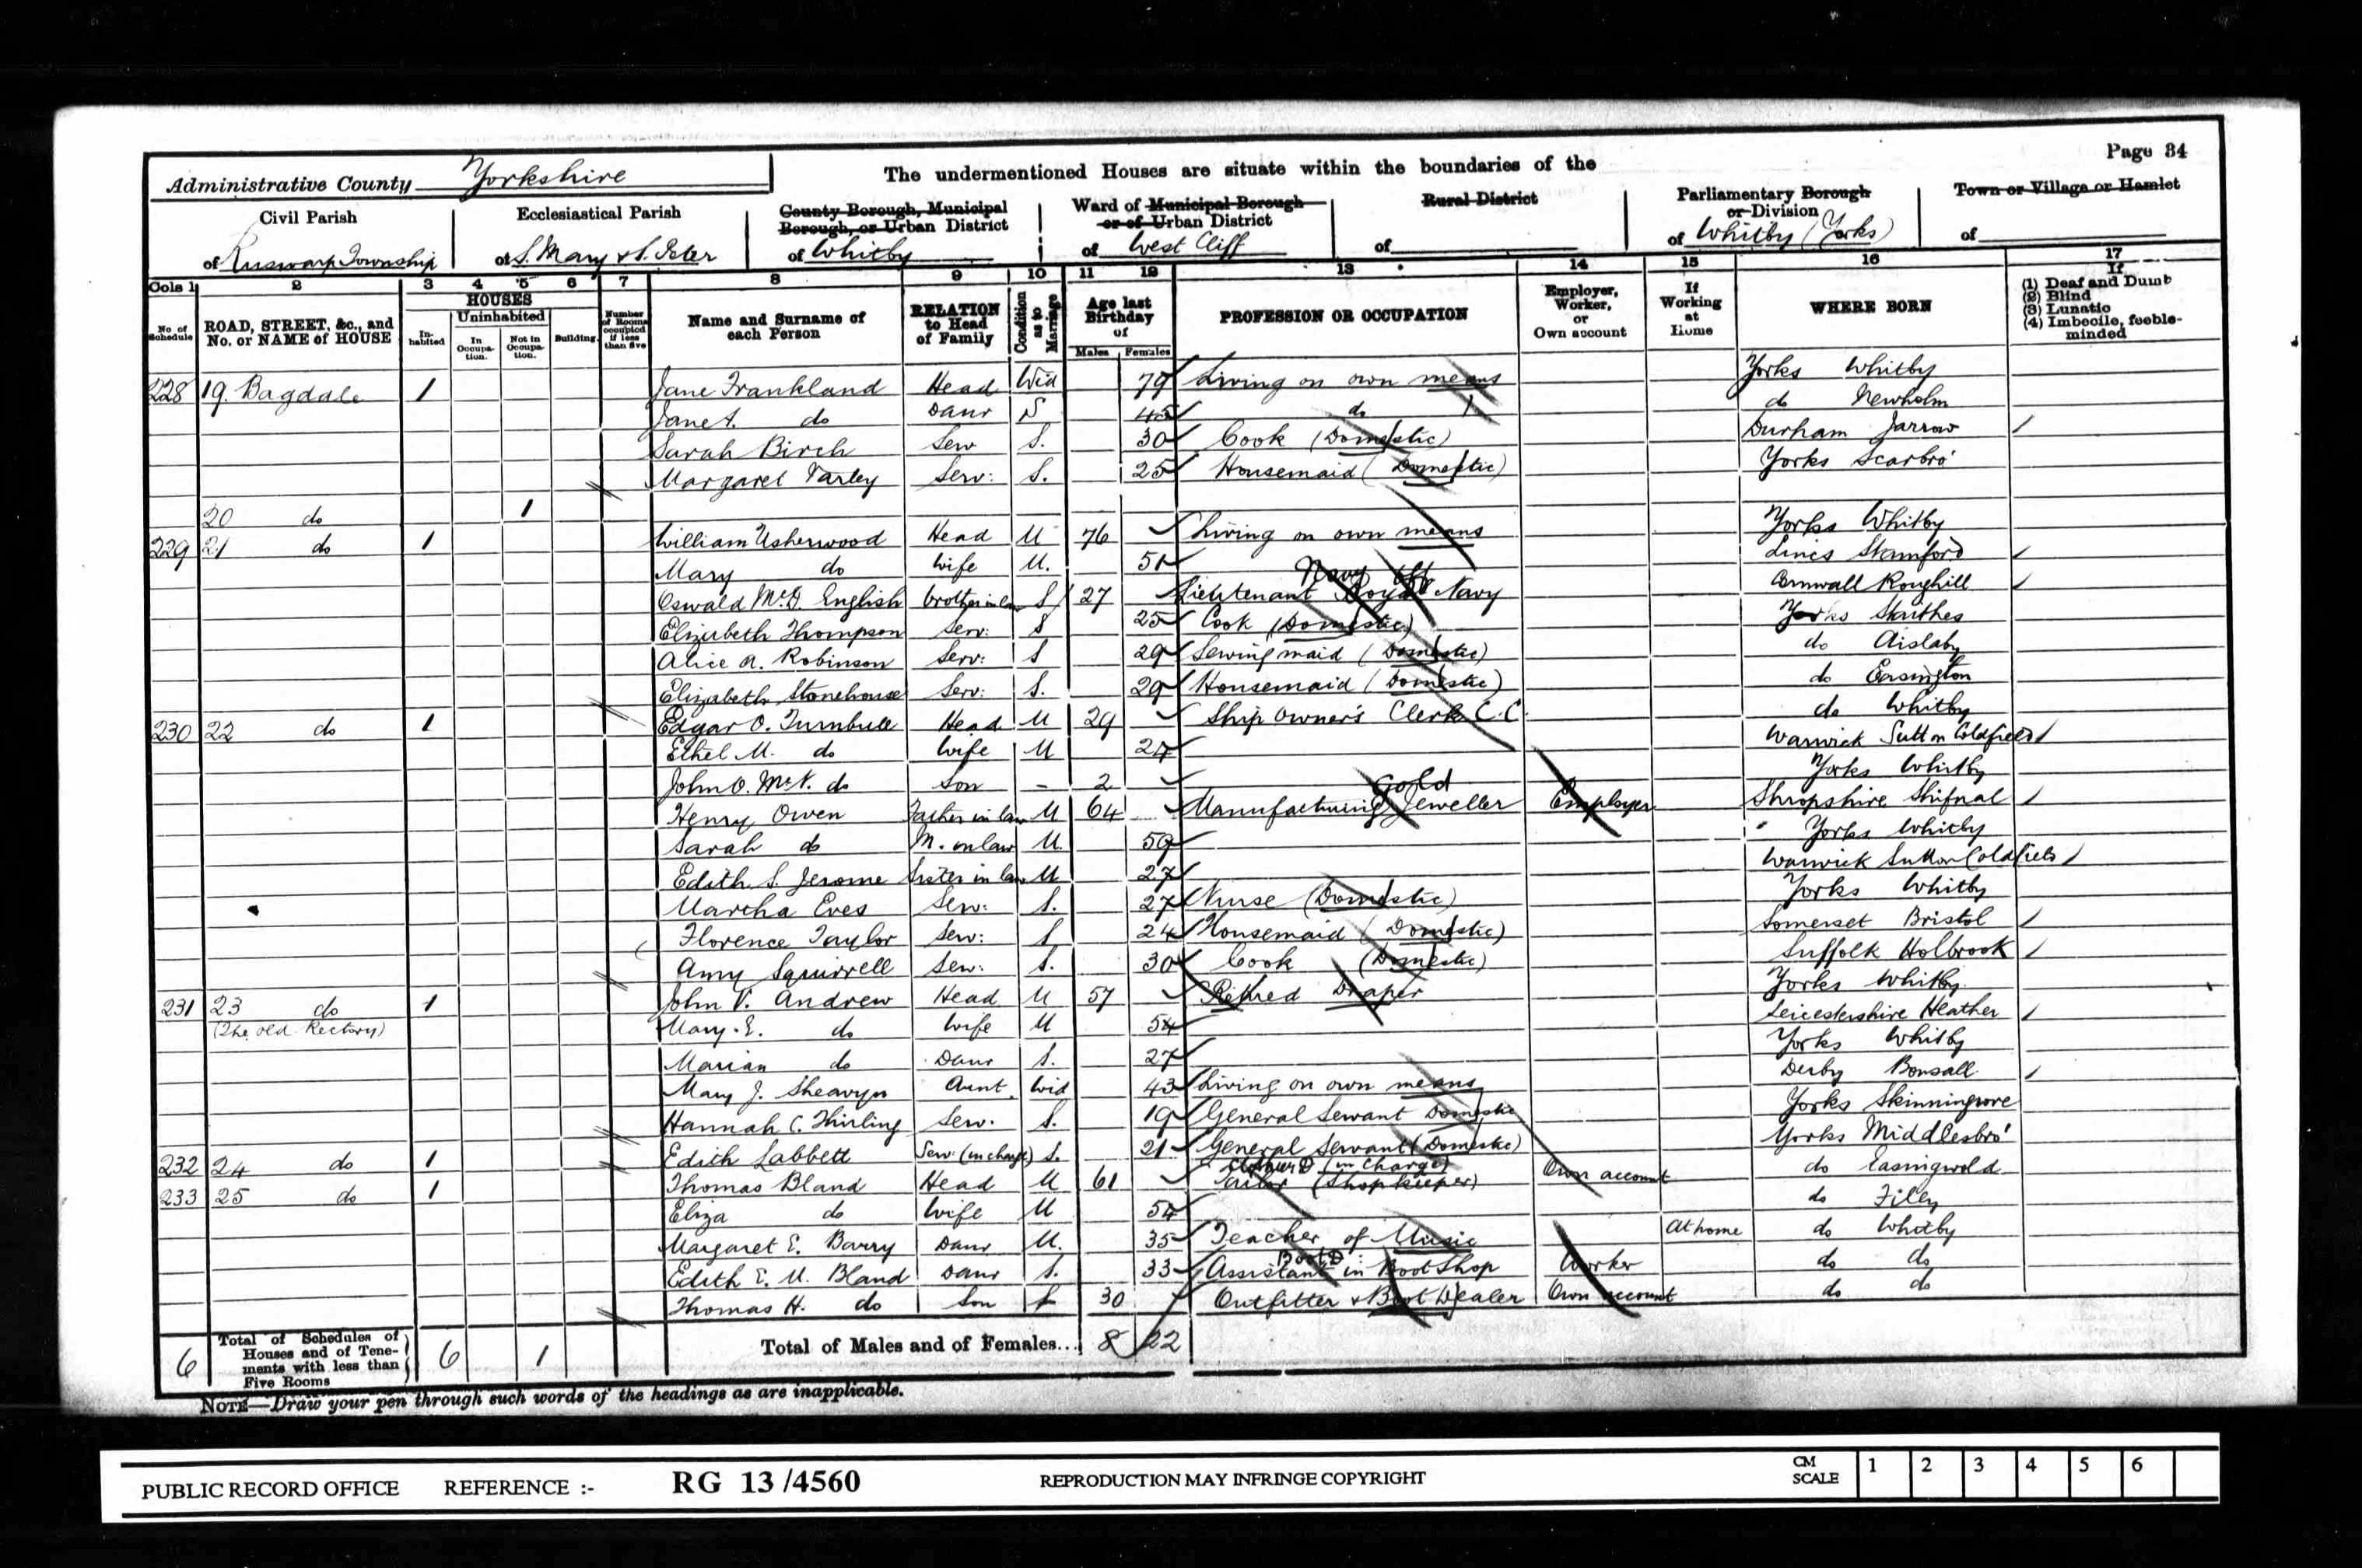 Page 34
Administrative County Yorkshire The undermentioned Houses are situate within the boundaries of the
Civil Parish Ecclesiastical Parish County Borough, Municipal Borough, or Urban District Ward of Municipal Borough or of Urban District Rural District Parliamentary Borough or Division Town or Village or Hamlet
of Ruswarp Township of S. Mary & S. Peter of Whitby of West Cliff of of Whitby (Yorks) of
Cols 1 2 3 4 5 6 7 8 9 10 11 12 13 14 15 16 17
No. of Schedule ROAD, STREET, &c., and No. or NAME of HOUSE HOUSES Inhabited Uninhabited In Occupation. Not in Occupation. Building. Number of Rooms occupied if less than five Name and Surname of each Person RELATION to Head of Family Condition as to Marriage Age last Birthday of Males Females PROFESSION OR OCCUPATION Employer, Worker, or Own account If Working at Home WHERE BORN If (1) Deaf and Dumb (2) Blind (3) Lunatic (4) Imbecile, feeble-minded
228 19. Bagdale 1 Jane Frankland Head Wid 79 Living on own means Yorks Whitby
Jane A. do Daur S 45 do Newholm
Sarah Birch Serv S. 30 Cook (Domestic) Durham Jarrow
Margaret Varley Serv: S. 25 Housemaid (Domestic) Yorks Scarbro'
20 do 1
229 21 do 1 William Usherwood Head M 76 Living on own means Yorks Whitby
Mary do Wife M. 51 Lincs Stamford
Navy Off
Oswald McD. English brother in law S 27 Lieutenant Royal Navy Cornwall Roughill
Elizabeth Thompson Serv: S 25 Cook (Domestic) Yorks Staithes
Alice A. Robinson Serv: S 29 Sewing maid (Domestic) do Aislaby
Elizabeth Stonehouse Serv: S. 29 Housemaid (Domestic) do Easington
230 22 do 1 Edgar O. Turnbull Head M 29 Ship Owner's Clerk C.C. do Whitby
Ethel M. do Wife M 27 Warwick Sutton Coldfield
John O. McK. do Son - 2 Yorks Whitby
Gold
Henry Owen Father in law M 64 Manufacturing Jeweller Employer Shropshire Shifnal
Sarah do M. in law M. 59 Yorks Whitby
Edith S. Jerome Sister in law M 27 Warwick Sutton Coldfield
Martha Eves Serv: S. 27 Nurse (Domestic) Yorks Whitby
Florence Taylor Serv: S 24 Housemaid (Domestic) Somerset Bristol
Amy Squirrell Serv: S. 30 Cook (Domestic) Suffolk Holbrook
231 23 do 1 John V. Andrew Head M 57 Retired Draper Yorks Whitby
(The old Rectory) Mary E. do Wife M 54 Leicestershire Heather
Marian do Daur S. 27 Yorks Whitby
Mary J. Sheavyn Aunt Wid 43 Living on own means Derby Bonsall
Hannah C. Thirling Serv. S. 19 General Servant Domestic Yorks Skinningrove
232 24 do 1 Edith Labbett Serv (in charge) S. 21 General Servant (Domestic) Yorks Middlesbro'
Clothier D (in Charge)
233 25 do 1 Thomas Bland Head M 61 Tailor (Shopkeeper) Own account do Easingwold
Eliza do Wife M 54 do Filey
Margaret E. Barry Daur M. 35 Teacher of Music At home do Whitby
Boot D
Edith E. M. Bland Daur S. 33 Assistant in Boot Shop Worker do do
Thomas H. do Son S 30 Outfitter & Boot Dealer Own account do do
6 Total of Schedules of Houses and of Tenements with less than Five Rooms 6 1 Total of Males and of Females... 8 22
NOTE—Draw your pen through such words of the headings as are inapplicable.
PUBLIC RECORD OFFICE REFERENCE :- RG 13 /4560 REPRODUCTION MAY INFRINGE COPYRIGHT CM SCALE 1 2 3 4 5 6